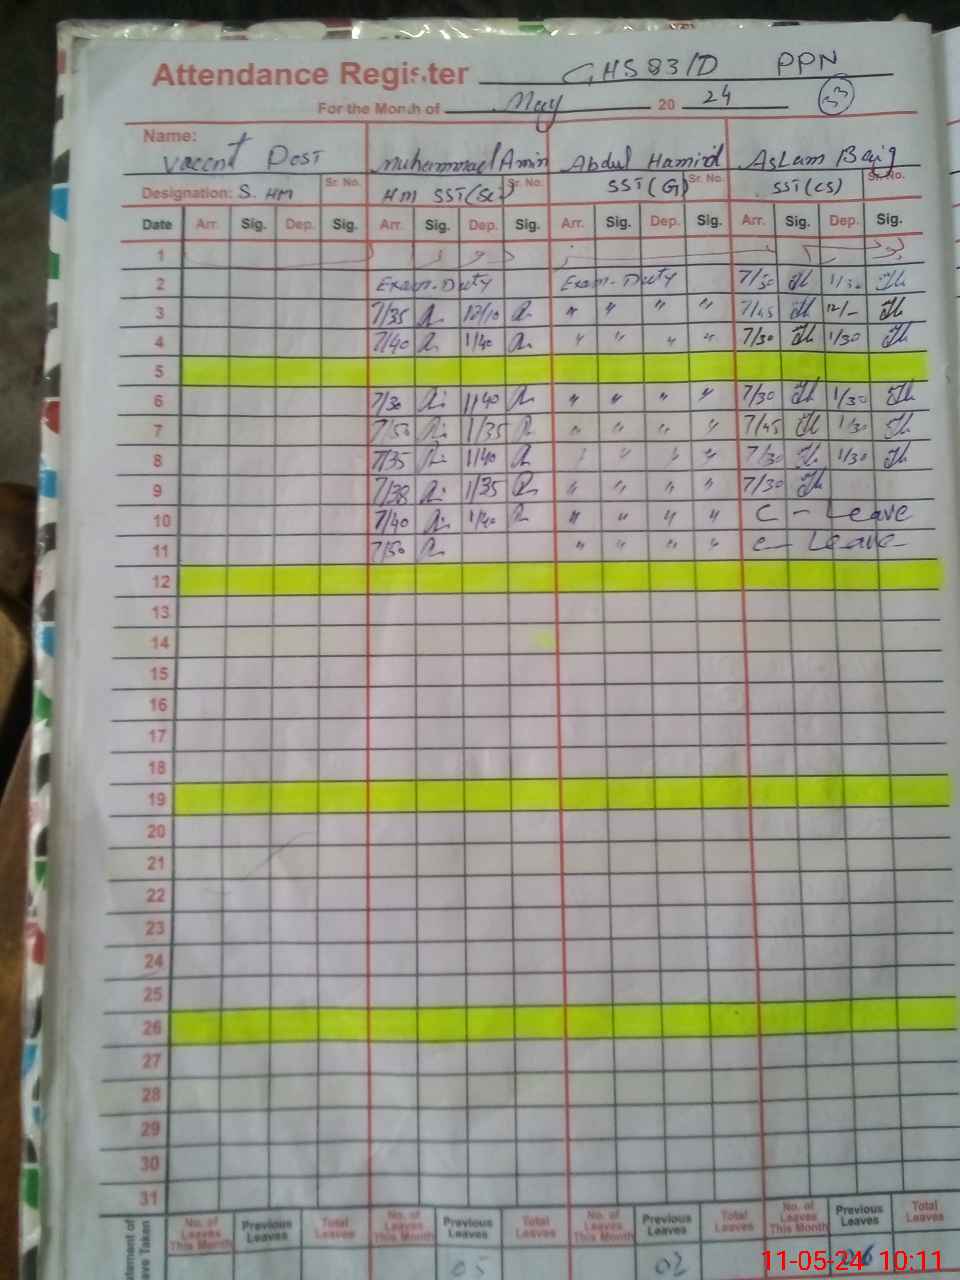 Attendance Register GHS 83/D PPN
For the Month of May 20 24 33
Name:
Vaccnt Post Muhammad Amin Abdul Hamid Aslam Baig
Designation: S. HM Sr. No. HM SST(Sc) Sr. No. SST(G) Sr. No. SST(CS) Sr. No.
Date Arr. Sig. Dep. Sig. Arr. Sig. Dep. Sig. Arr. Sig. Dep. Sig. Arr. Sig. Dep. Sig.
1
2 Exam-Duty Exam-Duty 7/30 1/30
3 7/35 12/10 " " " " 7/45 12/-
4 7/40 1/40 " " " " 7/30 1/30
5
6 7/30 1/40 " " " " 7/30 1/30
7 7/50 1/35 " " " " 7/45 1/30
8 7/35 1/40 " " " " 7/30 1/30
9 7/38 1/35 " " " " 7/30
10 7/40 1/40 " " " " C - Leave
11 7/50 " " " " C - Leave
12
13
14
15
16
17
18
19
20
21
22
23
24
25
26
27
28
29
30
31
No. of Leaves This Month Previous Leaves Total Leaves No. of Leaves This Month Previous Leaves Total Leaves No. of Leaves This Month Previous Leaves Total Leaves No. of Leaves This Month Previous Leaves Total Leaves
05 02 06
11-05-24 10:11